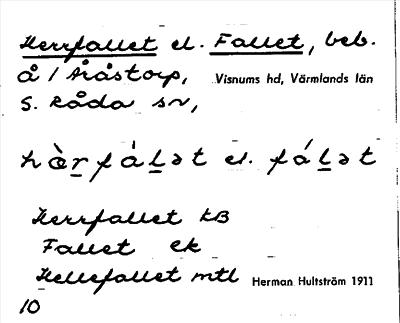 Herrfallet el. Fallet, beb.
å / Åråstorp, Visnums hd, Värmlands län
S. Råda sn,
hὰr̠fál̠ət el. fál̠ət
Herrfallet kB
Fallet ek
Hellefallet mtl Herman Hultström 1911
10